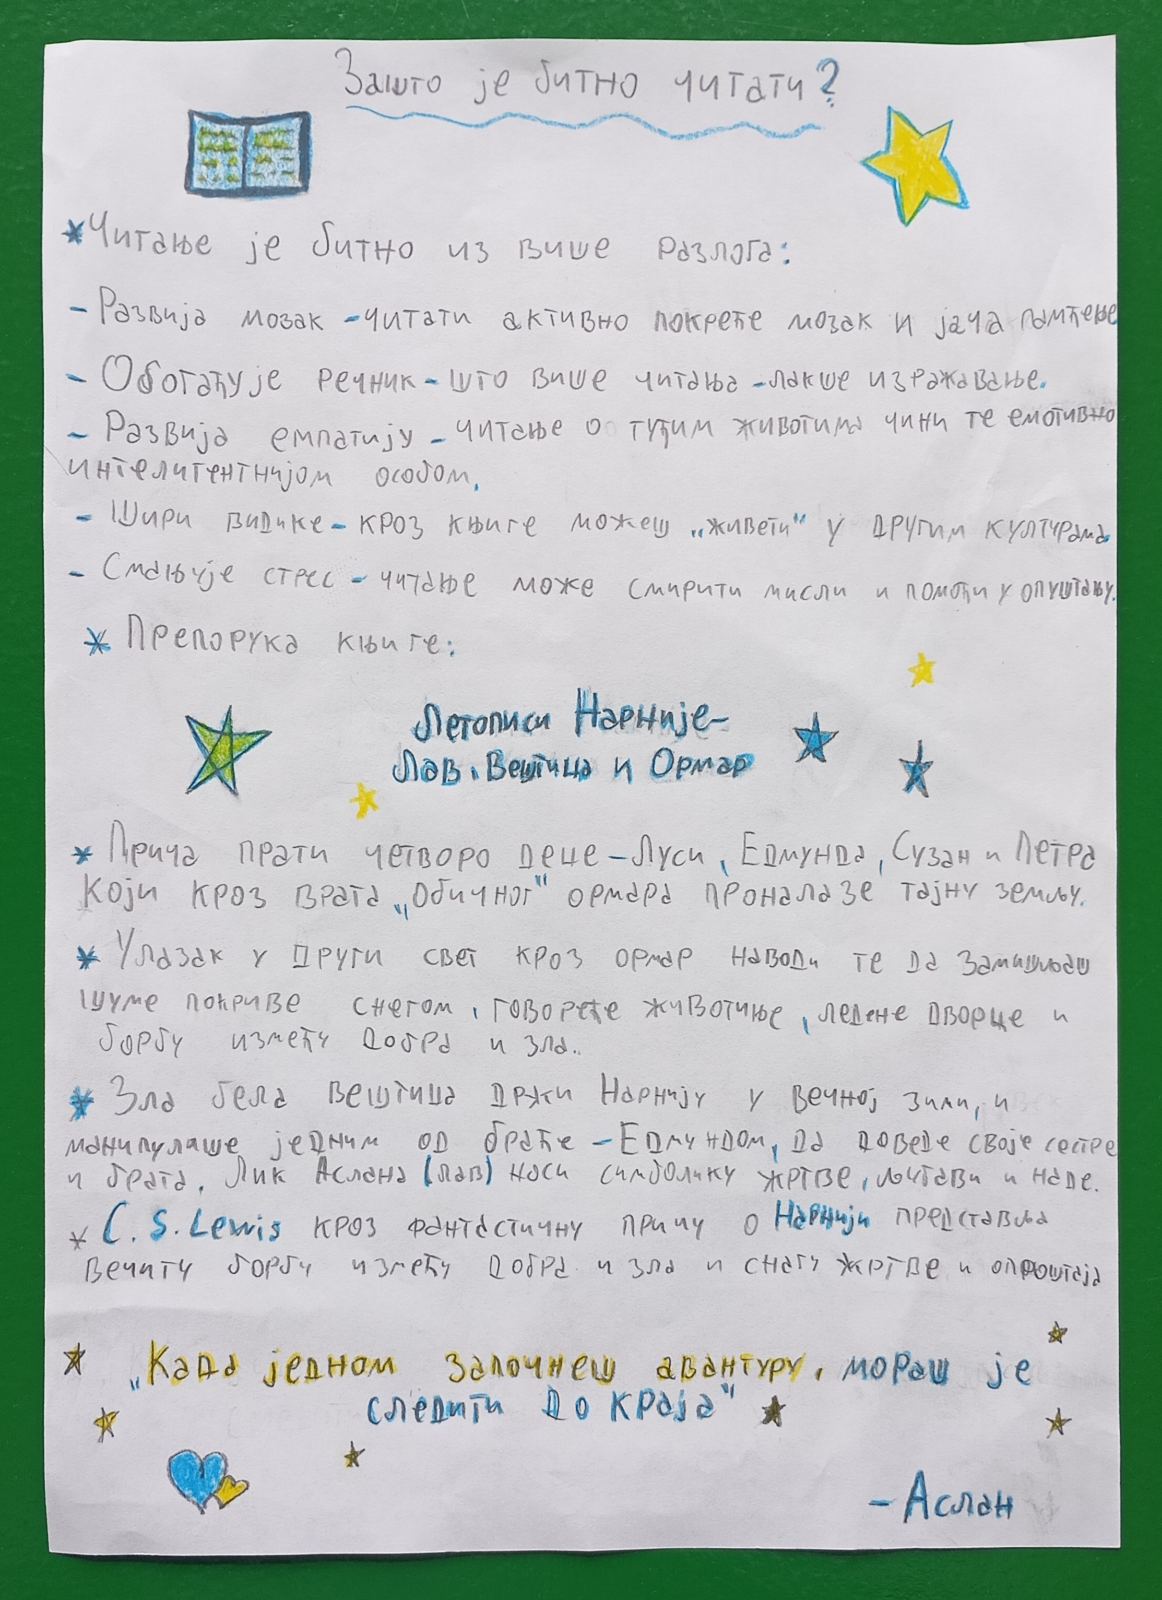 Зашто је битно читати?
*Читање је битно из више разлога:
- Развија мозак - читати активно покреће мозак и јача памћење
- Обогаћује речник - што више читања - лакше изражавање.
- Развија емпатију - читање о туђим животима чини те емотивно
интелигентнијом особом.
- Шири видике - кроз књиге можеш „живети“ у другим културама.
- Смањује стрес - читање може смирити мисли и помоћи у опуштању.
* Препорука књиге:
Летописи Нарније-
Лав, Вештица и Ормар
* Прича прати четворо деце - Луси, Едмунда, Сузан и Петра
који кроз врата „обичног“ ормара проналазе тајну земљу.
* Улазак у други свет кроз ормар наводи те да замишљаш
шуме покриве снегом, говореће животиње, ледене дворце и
борбу између добра и зла.
* Зла бела вештица држи Нарнију у вечној зими, и
манипулише једним од браће - Едмундом, да доведе своје сестре
и брата. Лик Аслана (лав) носи симболику жртве, љубави и наде.
* C. S. Lewis кроз фантастичну причу о Нарнији представља
вечиту борбу између добра и зла и снагу жртве и опроштаја
„Када једном започнеш авантуру, мораш је
следити до краја“
- Аслан